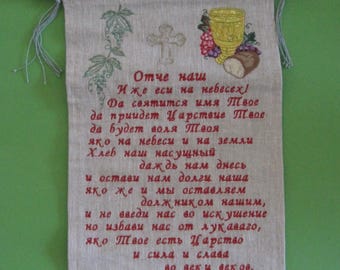 Отче наш
Иже еси на небесех!
Да святится имя Твое
да приидет Царствие Твое
да будет воля Твоя
яко на небеси и на земли
Хлеб наш насущный
даждь нам днесь
и остави нам долги наша
яко же и мы оставляем
должником нашим,
и не введи нас во искушение
но избави нас от лукаваго,
яко Твое есть Царство
и сила и слава
во веки веков.